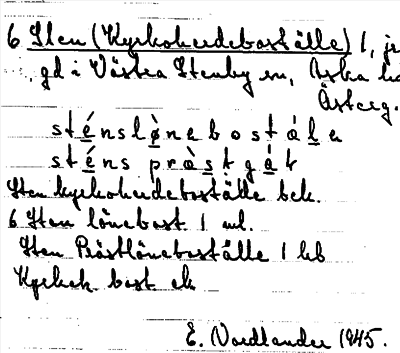 6 Sten (Kyrkoherdeboställe) 1, je
gd i Västra Stenby sn, Aska hd
Österg.
sténslò̱nebostäle
sténs prà̱stgá̱r
Sten kyrkoherdeboställe bek.
6 Sten lönebost. 1 ml.
Sten Prästlöneboställe 1 kb
Kyrkoh. bost ek
E. Nordlander 1945.